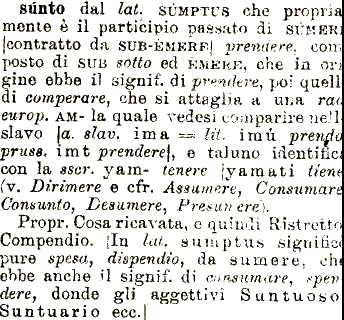 súnto dal lat. SÚMPTUS che propria
mente è il participio passato di SÚMERE
[contratto da SUB-ÉMERE] prendere, com
posto di SUB sotto ed ÉMERE, che in ori
gine ebbe il signif. di prendere, poi quell
di comperare, che si attaglia a una rad
europ. AM- la quale vedesi comparire nell
slavo [a. slav. ima = lit. imú prendo
pruss. imt prendere], e taluno identific
con la sscr. yam- tenere [yamati tiene
(v. Dirimere e cfr. Assumere, Consumare
Consunto, Desumere, Presumere).
Propr. Cosa ricavata, e quindi Ristretto
Compendio. [In lat. sumptus significò
pure spesa, dispendio, da sumere, che
ebbe anche il signif. di consumare, spen
dere, donde gli aggettivi Suntuoso
Suntuario ecc.]